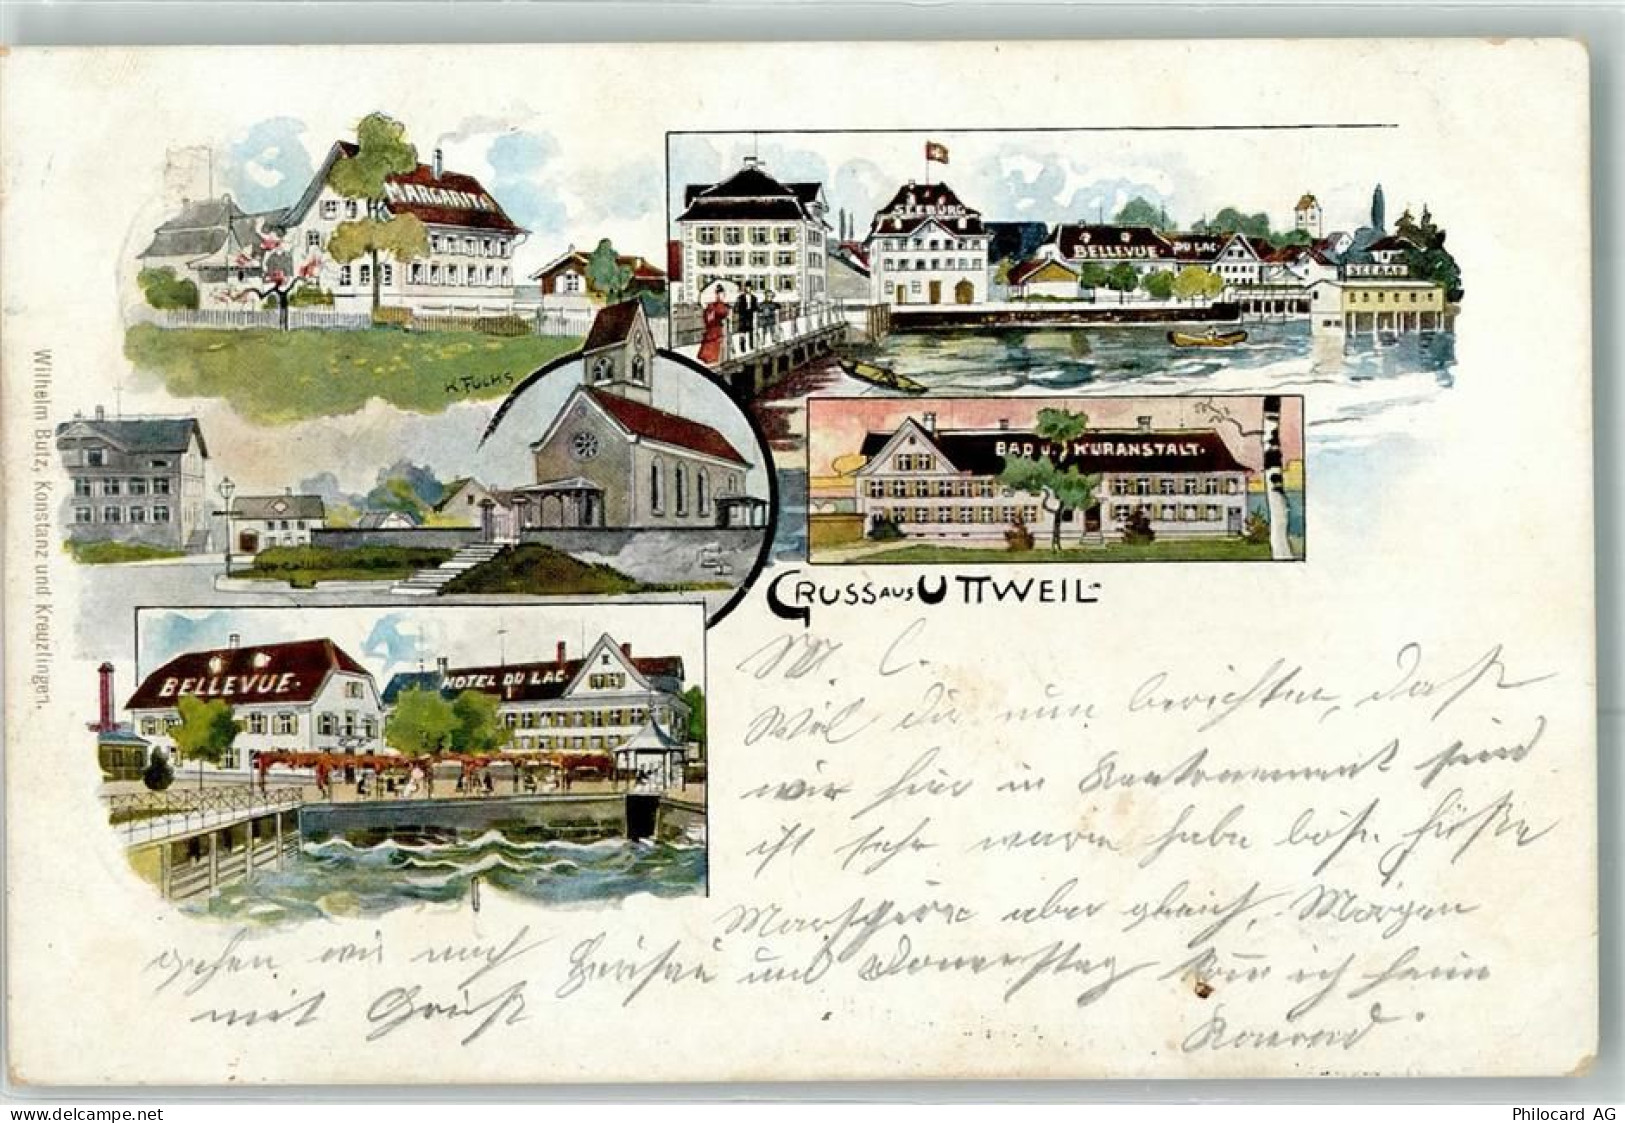 MARGARITA
SEEBURG
BELLEVUE. DU LAC.
SEEBAD
K. FUCHS
BAD U. KURANSTALT.
GRUSS AUS UTTWEIL
BELLEVUE.
HOTEL DU LAC.
Wilhelm Butz, Konstanz und Kreuzlingen.
M. L.
Will dir nun berichten, daß
wir hier in Kantonnement sind
ist sehr warm habe böse Füße
aber gleich, Morgen
gehen wir nach Herisau und Donnerstag komm ich heim
mit Gruß
Konrad
www.delcampe.net
Philocard AG